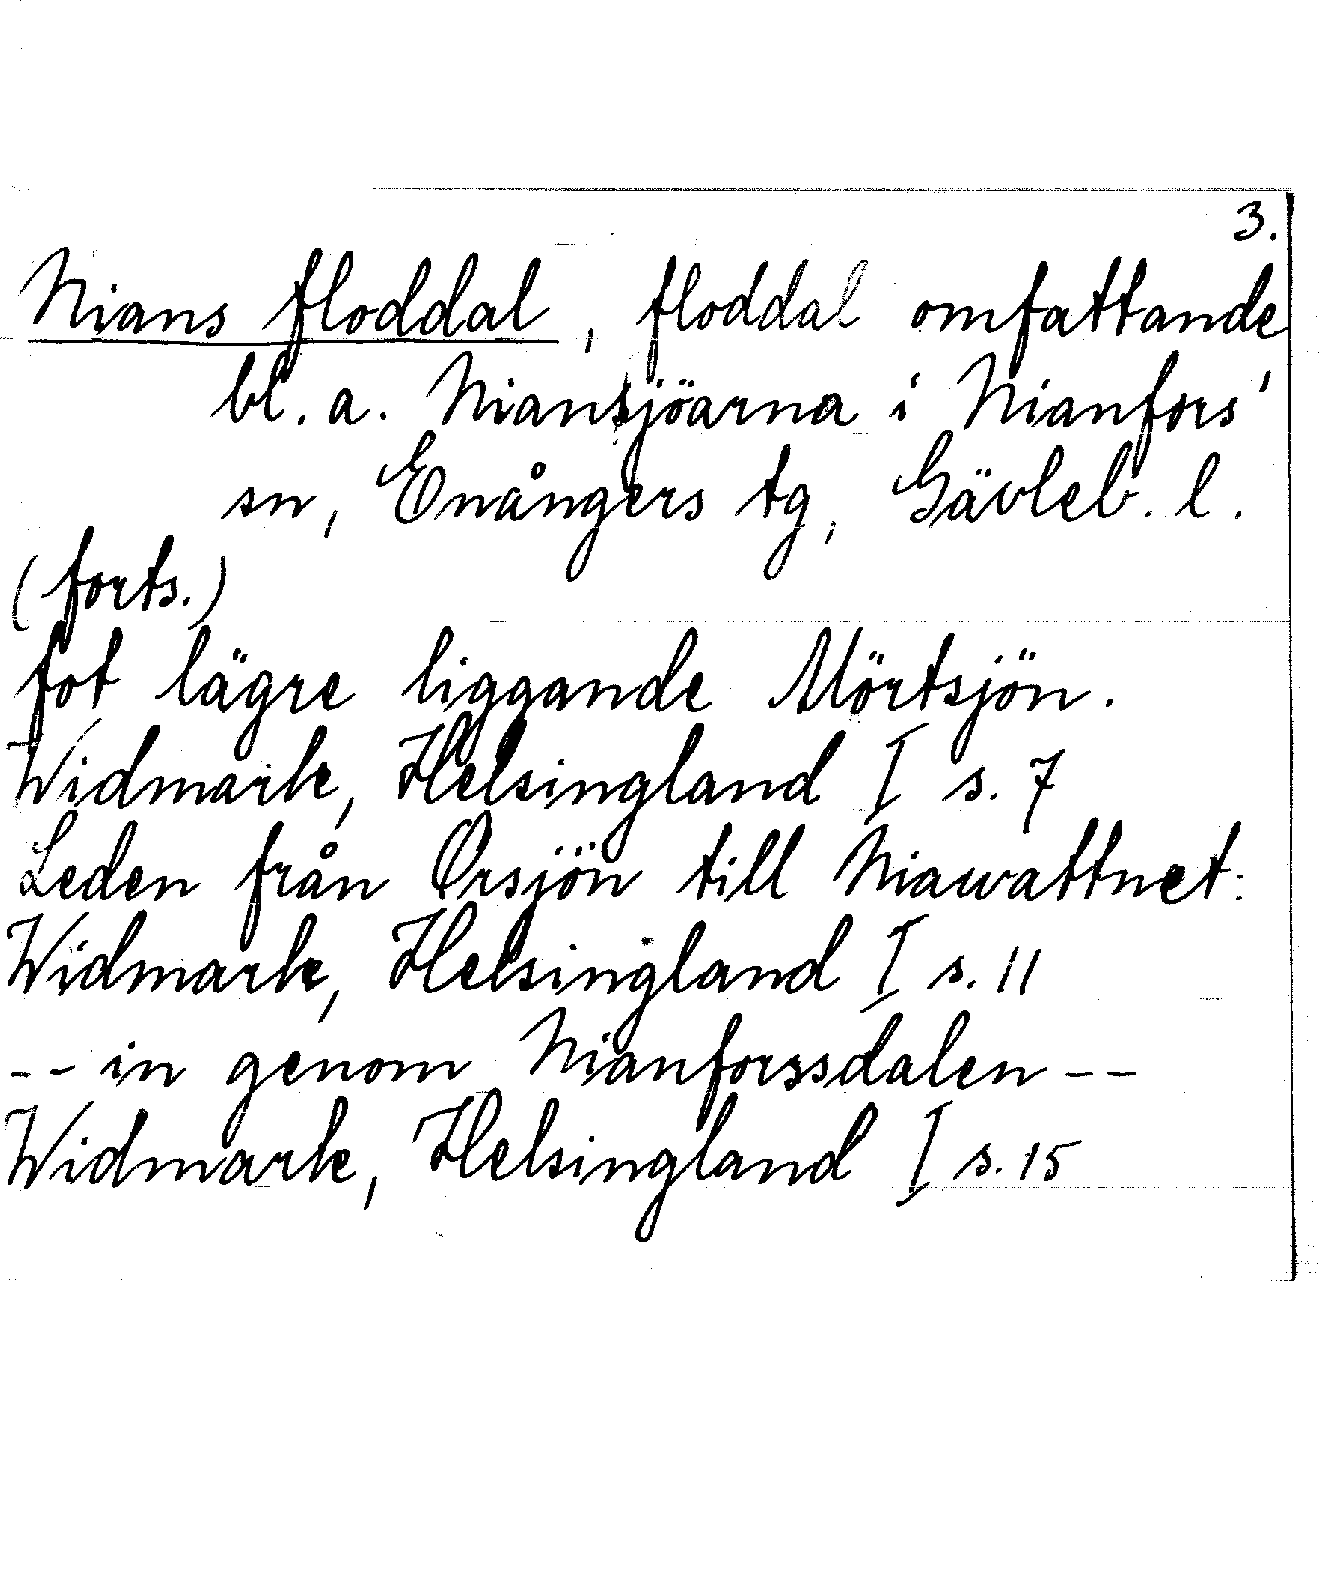 3.
Nians floddal, floddal omfattande
bl. a. Niansjöarna i Nianfors'
sn, Enångers tg, Gävleb. l.
(forts.)
fot lägre liggande Mörtsjön.
Widmark, Helsingland I s. 7
Leden från Örsjön till Niawattnet:
Widmark, Helsingland I s. 11
-- in genom Nianforssdalen --
Widmark, Helsingland I s. 15